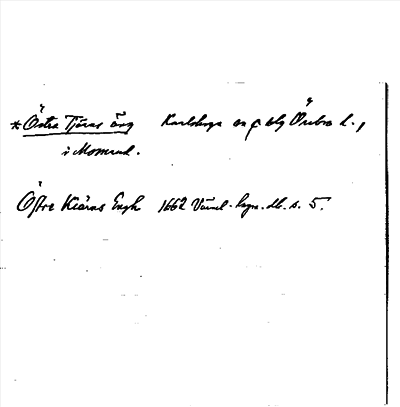 *Östra Tjärns Äng Karlskoga sn o blg Örebro l.,
i Mosserud.
Östre Kiärns Engh 1662 Värml. lagm. db. s. 5.